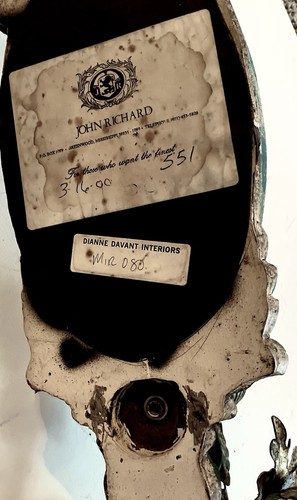 JOHN RICHARD
P.O. BOX 1989 • GREENWOOD, MISSISSIPPI 38930
For those who want the finest
551
3-16-00
DIANNE DAVANT INTERIORS
MIR 080